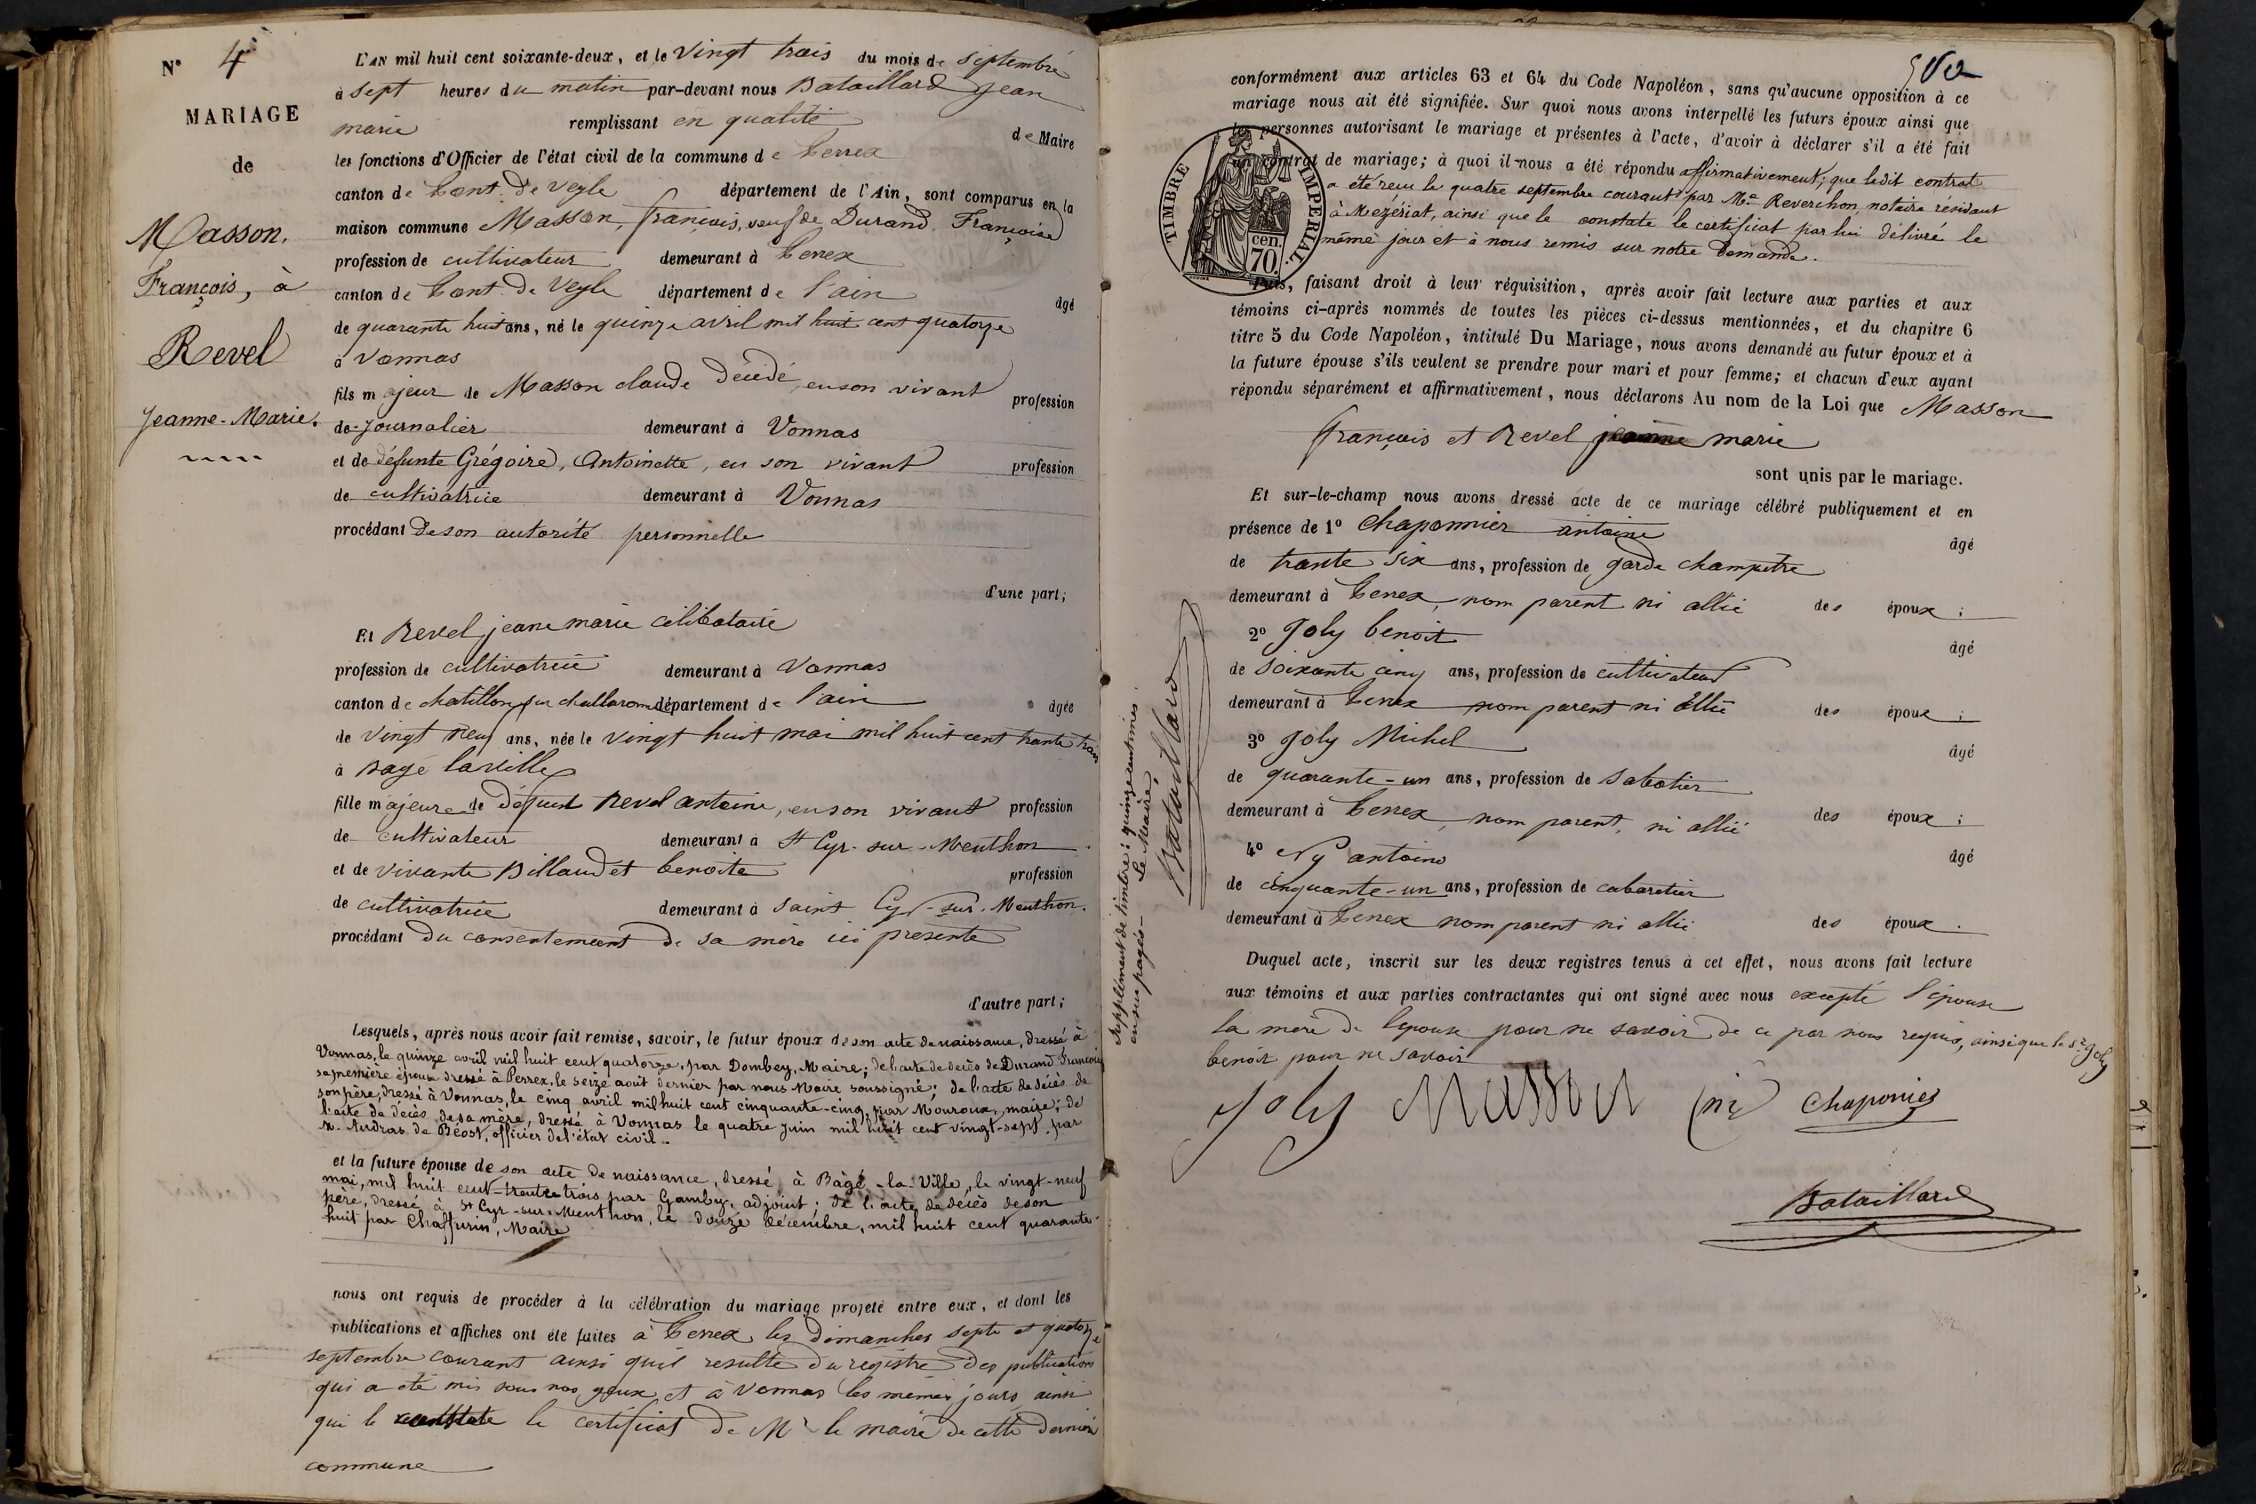 N° 4
MARIAGE
de
Masson,
François, à
Revel
Jeanne-Marie.
L'AN mil huit cent soixante-deux, et le vingt trois du mois de septembre
à sept heures du matin par-devant nous Bataillard Jean
marie remplissant en qualité de Maire
les fonctions d'Officier de l'état civil de la commune de Perrex
canton de Pont de Veyle département de l'Ain, sont comparus en la
maison commune Masson, françois, veuf de Durand Françoise
profession de cultivateur demeurant à Perrex
canton de Pont de Veyle département de l'ain âgé
de quarante huit ans, né le quinze avril mil huit cent quatorze
à Vonnas
fils majeur de Masson claude décédé, en son vivant profession
de journalier demeurant à Vonnas
et de défunte Grégoire, Antoinette, en son vivant profession
de cultivatrice demeurant à Vonnas
procédant de son autorité personnelle
d'une part;
Et Revel jeane marie célibataire
profession de cultivatrice demeurant à Vonnas
canton de chatillon sur challaronne département de l'ain âgée
de vingt neuf ans, née le vingt huit mai mil huit cent trante trois
à Bagé laville
fille majeure de défunt Revel antoine, en son vivant profession
de cultivateur demeurant à St Cyr-sur-Menthon
et de vivante Billaudet benoite profession
de cultivatrice demeurant à Saint Cyr-sur-Menthon.
procédant du consentement de sa mère ici presente
d'autre part;
Lesquels, après nous avoir fait remise, savoir, le futur époux de son acte de naissance, dressé à
Vonnas, le quinze avril mil huit cent quatorze, par Dombey, Maire; de l'acte de décès de Durand Françoise
sa première épouse dressé à Perrex, le seize août dernier par nous Maire soussigné; de l'acte de décès de
son père, dressé à Vonnas, le cinq avril mil huit cent cinquante-cinq, par Mouroux, maire; de
l'acte de décès de sa mère, dressé à Vonnas le quatre juin mil huit cent vingt-sept, par
M. Audras de Béost, officier de l'état civil.
et la future épouse de son acte de naissance, dressé à Bâgé-la-Ville, le vingt-neuf
mai, mil huit cent-trente trois par Gamby, adjoint; de l'acte de décès de son
père, dressé à St Cyr-sur-Menthon, le douze décembre, mil huit cent quarante-
huit par Chaffurin, Maire
nous ont requis de procéder à la célébration du mariage projeté entre eux, et dont les
publications et affiches ont été faites à Perrex les dimanches septe et quatorze
septembre courant ainsi qu'il resulte du registre des publications
qui a été mis sous nos yeux, et à Vonnas les mêmes jours ainsi
que le constate le certificat de Mr le maire de cette dernière
commune
conformément aux articles 63 et 64 du Code Napoléon, sans qu'aucune opposition à ce
mariage nous ait été signifiée. Sur quoi nous avons interpellé les futurs époux ainsi que
les personnes autorisant le mariage et présentes à l'acte, d'avoir à déclarer s'il a été fait
un contrat de mariage; à quoi il nous a été répondu affirmativement, que ledit contrat
a été reçu le quatre septembre courant par Me Reverchon, notaire résidant
à Mézériat, ainsi que le constate le certificat par lui délivré le
même jour et à nous remis sur notre demande.
TIMBRE IMPERIAL.
70. cen.
Puis, faisant droit à leur réquisition, après avoir fait lecture aux parties et aux
témoins ci-après nommés de toutes les pièces ci-dessus mentionnées, et du chapitre 6
titre 5 du Code Napoléon, intitulé Du Mariage, nous avons demandé au futur époux et à
la future épouse s'ils veulent se prendre pour mari et pour femme; et chacun d'eux ayant
répondu séparément et affirmativement, nous déclarons Au nom de la Loi que Masson
françois et Revel jeanne marie
sont unis par le mariage.
Et sur-le-champ nous avons dressé acte de ce mariage célébré publiquement et en
présence de 1° Chaponnier antoine âgé
de trante six ans, profession de garde champêtre
demeurant à Perrex, nom parent ni allié des époux;
2° Joly benoit âgé
de soixante cinq ans, profession de cultivateur
demeurant à Perrex nom parent ni allié des époux;
3° Joly Michel âgé
de quarante-un ans, profession de sabotier
demeurant à Perrex, nom parent, ni allié des époux;
4° Ny antoine âgé
de cinquante-un ans, profession de cabaretier
demeurant à Perrex nom parent ni allié des époux.
Duquel acte, inscrit sur les deux registres tenus à cet effet, nous avons fait lecture
aux témoins et aux parties contractantes qui ont signé avec nous excepté l'épouse
la mère de l'epouse pour ne savoir de ce par nous requis, ainsi que le sr Joly
benoit pour ne savoir
Joly Masson Ni Chaponier
Bataillard
Supplément de timbre: quinze centimes
Le Maire,
Bataillard